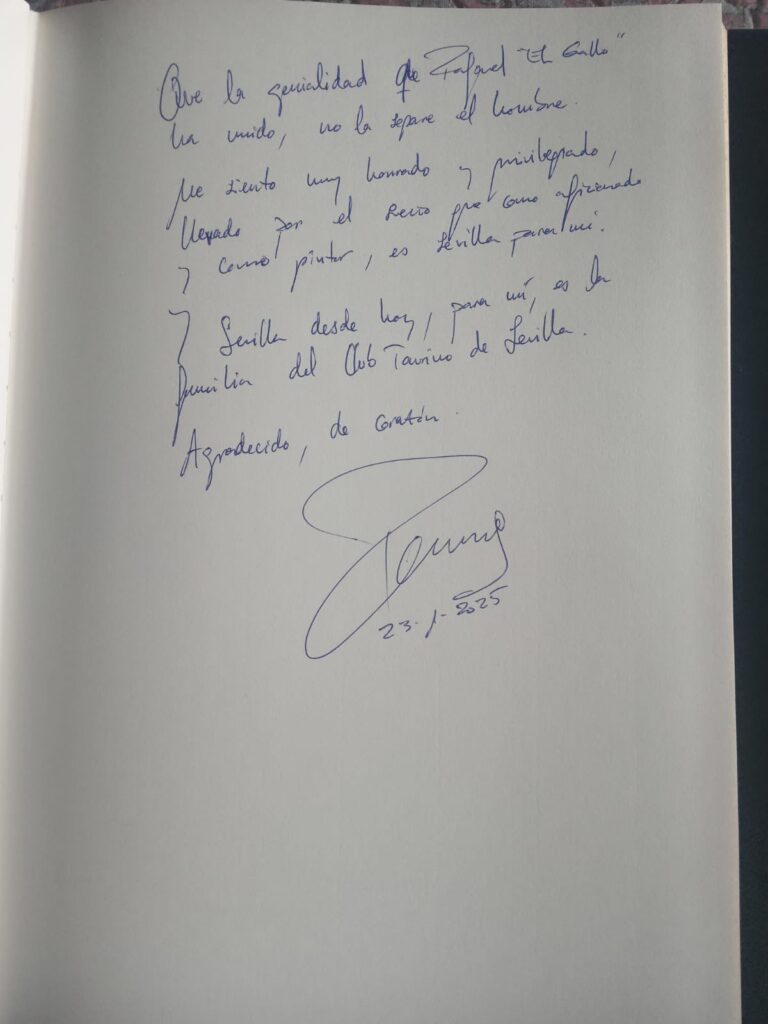 Que la genialidad que Rafael "El Gallo"
ha unido, no la separe el hombre.
Me siento muy honrado y privilegiado,
llevado por el peso que como aficionado
y como pintor, es Sevilla para mí.
Y Sevilla desde hoy, para mí, es la
familia del Club Taurino de Sevilla.
Agradecido, de corazón.
23-1-2025